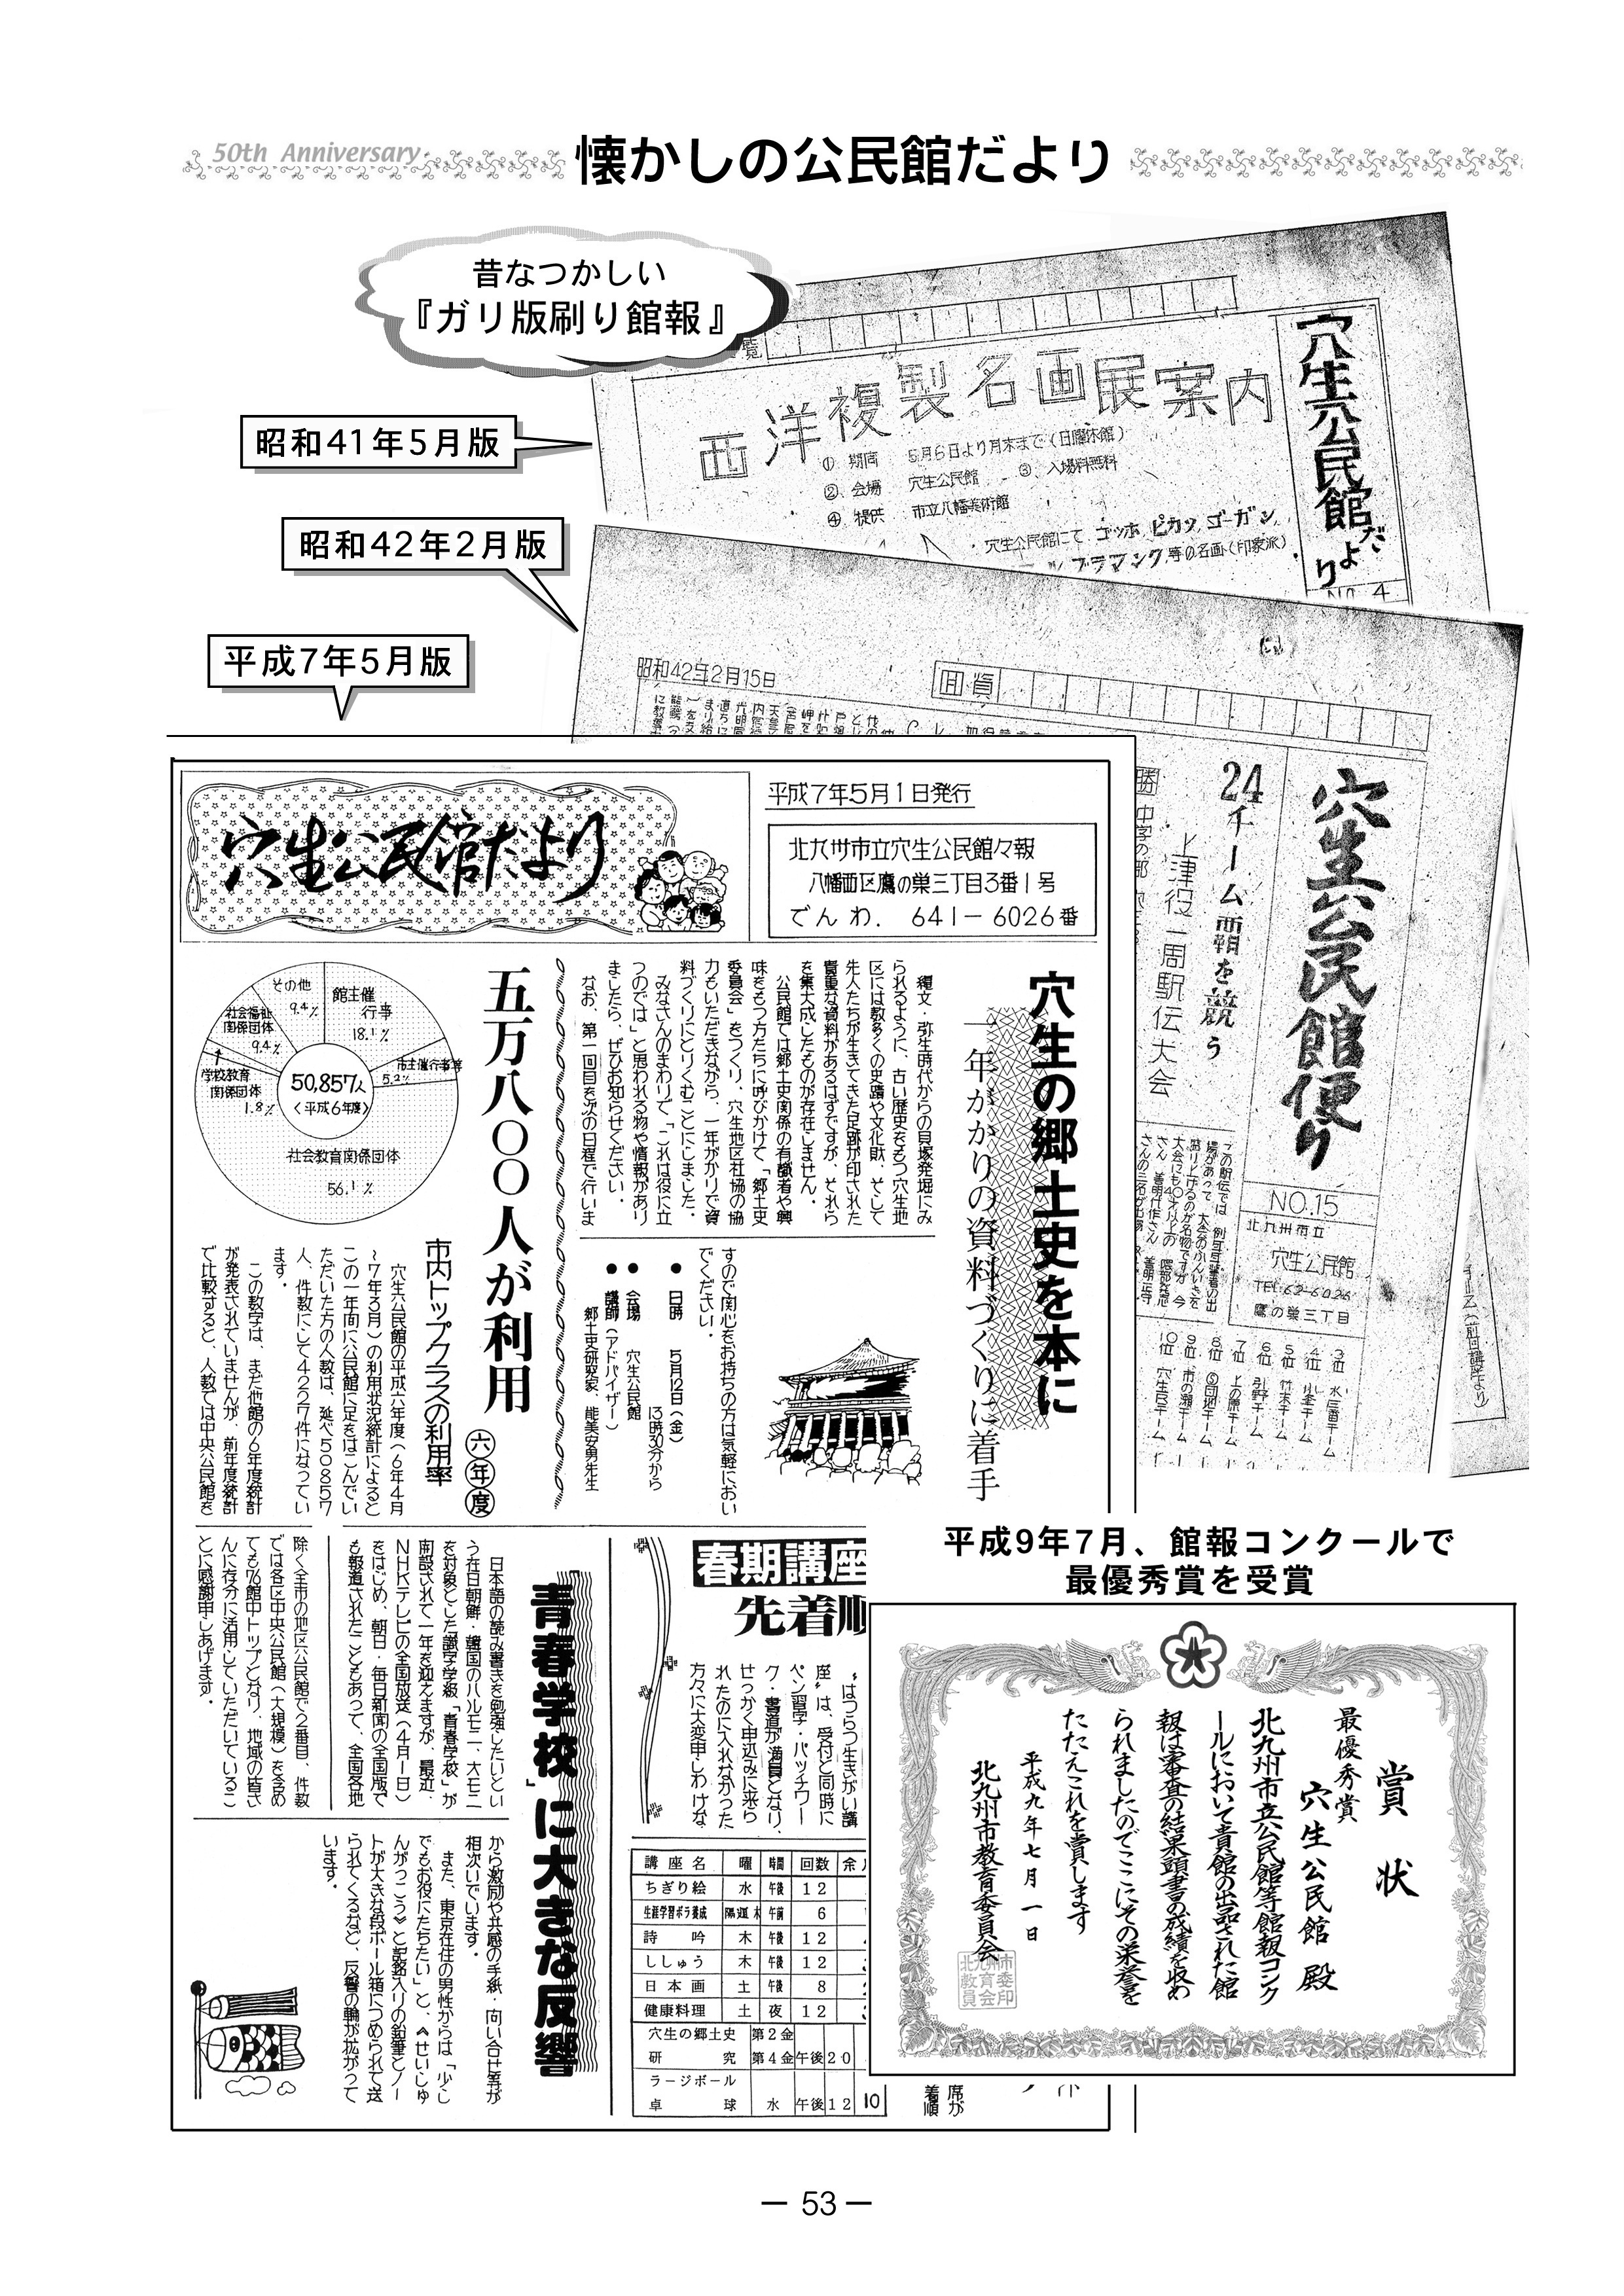 50th Anniversary
懐かしの公民館だより
昔なつかしい
『ガリ版刷り館報』
昭和41年5月版
昭和42年2月版
平成7年5月版
覧
穴生公民館だより
NO.4
西洋複製名画展案内
① 期間 5月6日より月末まで(日曜休館)
② 会場 穴生公民館 ③ 入場料無料
④ 提供 市立八幡美術館
穴生公民館にて ゴッホ ピカソ ゴーガン
ブラマンク 等の名画(印象派)
昭和42年2月15日
回覧
穴生公民館便り
NO.15
北九州市立
穴生公民館
TEL 62-6026
鷹の巣三丁目
24チーム覇を競う
上津役一周駅伝大会
3位
4位 小峯チーム
5位 竹末チーム
6位 引野チーム
7位 上の原チーム
8位 S団地チーム
9位 市の瀬チーム
10位 穴生Eチーム
穴生公民館だより
平成7年5月1日発行
北九州市立穴生公民館々報
八幡西区鷹の巣三丁目3番1号
でんわ. 641-6026番
穴生の郷土史を本に
一年がかりの資料づくりに着手
縄文・弥生時代からの貝塚発掘にみ
られるように、古い歴史をもつ穴生地
区には数多くの史蹟や文化財、そして
先人たちが生きてきた足跡が印された
貴重な資料があるはずですが、それら
を集大成したものが存在しません。
公民館では郷土史関係の有識者や興
味をもつ方たちに呼びかけて「郷土史
委員会」をつくり、穴生地区社協の協
力もいただきながら、一年がかりで資
料づくりにとりくむことにしました。
みなさんのまわりで「これは役に立
つのでは」と思われる物や情報があり
ましたら、ぜひお知らせください。
なお、第一回目を次の日程で行いま
すので関心をお持ちの方は気軽におい
でください。
● 日時 5月12日(金)
13時30分から
● 会場 穴生公民館
● 講師(アドバイザー)
郷土史研究家、能美安男先生
五万八〇〇人が利用
六年度
市内トップクラスの利用率
館主催行事
18.1%
市主催行事等
5.2%
社会教育関係団体
56.1%
学校教育関係団体
1.8%
社会福祉関係団体
9.4%
その他
9.4%
50,857人
〈平成6年度〉
穴生公民館の平成六年度(6年4月
~7年3月)の利用状況統計によると
この一年間に公民館に足をはこんでい
ただいた方の人数は、延べ50857
人、件数にして4227件になってい
ます。
この数字は、まだ他館の6年度統計
が発表されていませんが、前年度統計
で比較すると、人数では中央公民館を
除く全市の地区公民館で2番目、件数
では各区中央公民館(大規模)を含め
ても76館中トップとなり、地域の皆さ
んに存分に活用していただいているこ
とに感謝申しあげます。
「青春学校」に大きな反響
日本語の読み書きを勉強したいとい
う在日朝鮮・韓国のハルモニ、オモニ
を対象とした識字学級「青春学校」が
開設されて一年を迎えますが、最近、
NHKテレビの全国放送(4月1日)
をはじめ、朝日・毎日新聞の全国版で
も報道されたこともあって、全国各地
から激励や共感の手紙・問い合せ等が
相次いでいます。
また、東京在住の男性からは「少し
でもお役にたちたい」と、《せいしゅ
んがっこう》と記銘入りの鉛筆とノー
トが大きな段ボール箱につめられて送
られてくるなど、反響の輪が拡がって
います。
春期講座
先着順
〝はつらつ生きがい講
座〟は、受付と同時に
ペン習字・パッチワー
ク・書道が満員となり、
せっかく申込みに来ら
れたのに入れなかった
方々に大変申しわけな
講座名 曜 時間 回数 余
ちぎり絵 水 午後 12
生涯学習ボラ養成 隔週木 午前 6
詩吟 木 午後 12
ししゅう 木 午後 12
日本画 土 午後 8
健康料理 土 夜 12
穴生の郷土史研究 第2金 第4金 午後 20
ラージボール卓球 水 午後 12 10
席が
着順
平成9年7月、館報コンクールで
最優秀賞を受賞
賞状
最優秀賞
穴生公民館 殿
北九州市立公民館等館報コンク
ールにおいて貴館の出品された館
報は審査の結果頭書の成績を収め
られましたのでここにその栄誉を
たたえこれを賞します
平成九年七月一日
北九州市教育委員会
北九州市教育委員会印
― 53 ―